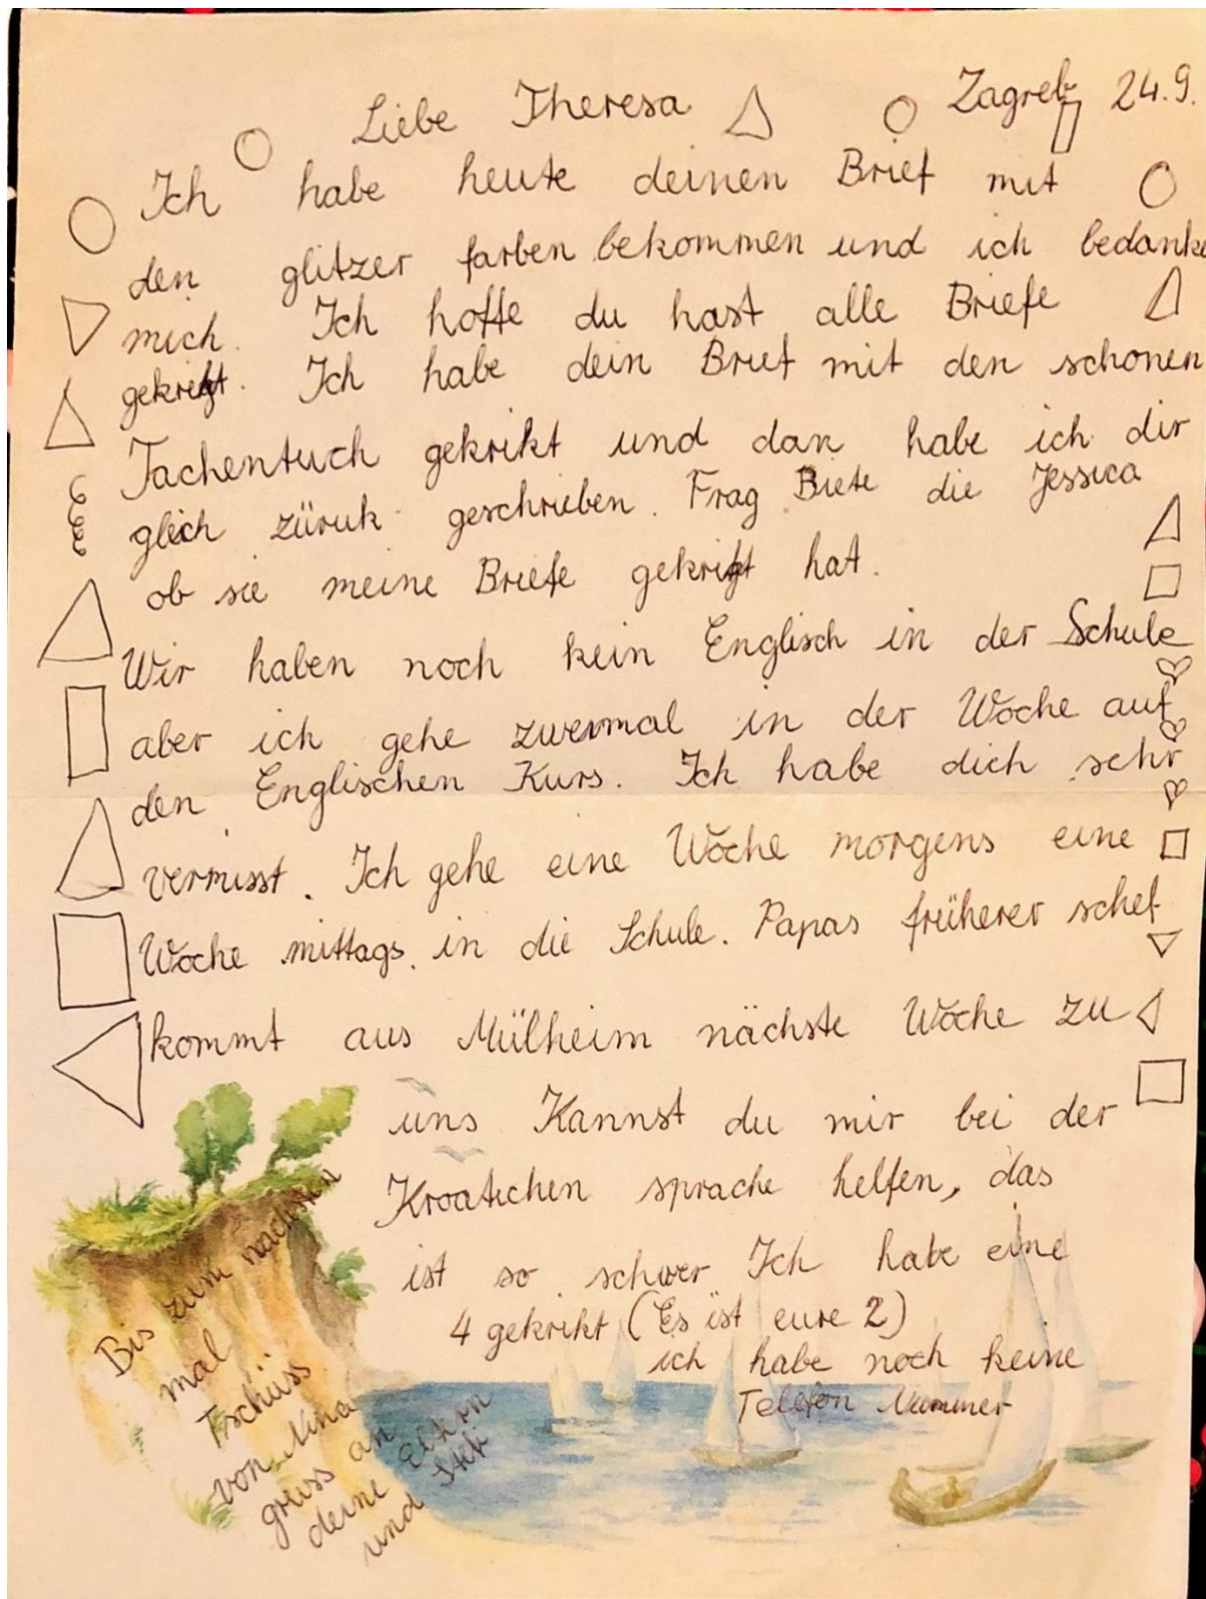 Zagreb 24.9.
Liebe Theresa
Ich habe heute deinen Brief mit
den glitzer farben bekommen und ich bedanke
mich. Ich hoffe du hast alle Briefe
gekrikt. Ich habe dein Brief mit den schonen
Tachentuch gekrikt und dan habe ich dir
gleich züruk geschrieben. Frag Biete die Jessica
ob sie meine Briefe gekrikt hat.
Wir haben noch kein Englisch in der Schule
aber ich gehe zweimal in der Woche auf
den Englischen Kurs. Ich habe dich sehr
vermisst. Ich gehe eine Woche morgens eine
Woche mittags in die Schule. Papas früherer schef
kommt aus Mülheim nächste Woche zu
uns Kannst du mir bei der
Kroatichen sprache helfen, das
ist so schwer Ich habe eine
4 gekrikt (Es ist eure 2)
ich habe noch keine
Telefon Nummer
Bis zum nächsten
mal
Tschüss
von Nina
gruss an
deine Eltern
und